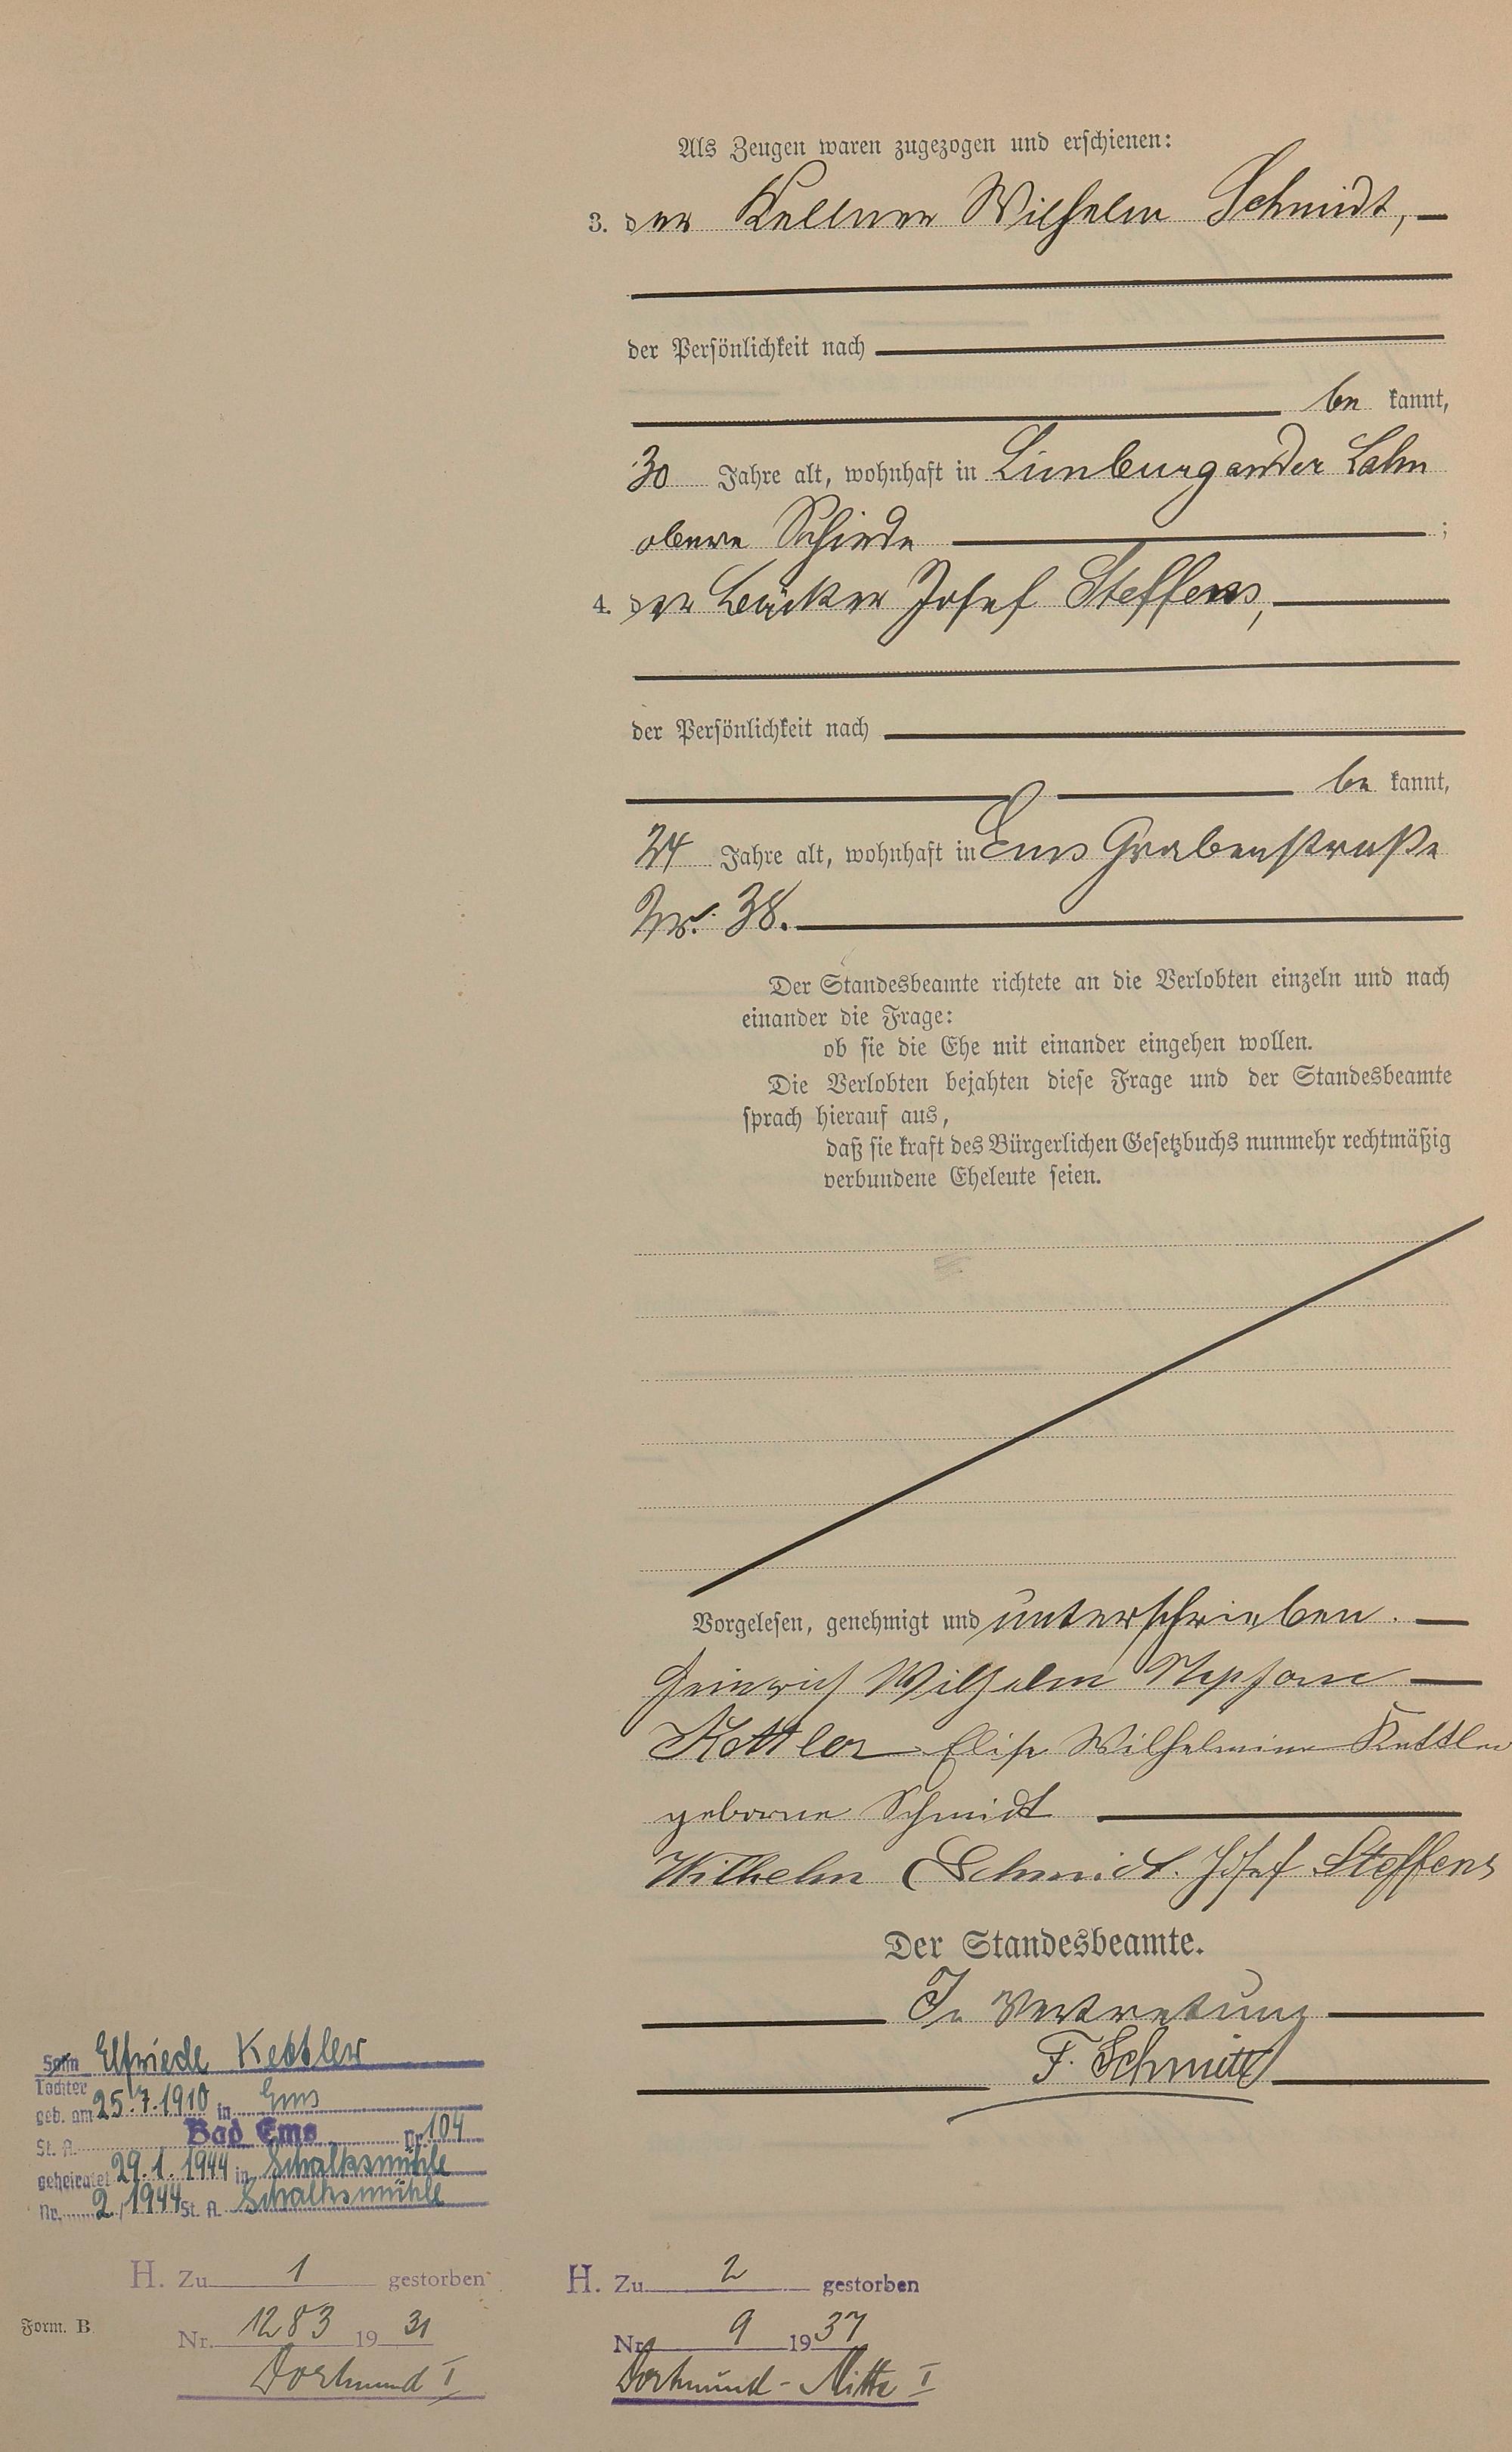 Als Zeugen waren zugezogen und erschienen:
3. der Kellner Wilhelm Schmidt,
der Persönlichkeit nach
be kannt,
30 Jahre alt, wohnhaft in Limburg an der Lahn
obere Schiede ;
4. der Bäcker Josef Steffens,
der Persönlichkeit nach
be kannt,
24 Jahre alt, wohnhaft in Ems Grabenstraße
Nr. 38.
Der Standesbeamte richtete an die Verlobten einzeln und nach
einander die Frage:
ob sie die Ehe mit einander eingehen wollen.
Die Verlobten bejahten diese Frage und der Standesbeamte
sprach hierauf aus,
daß sie kraft des Bürgerlichen Gesetzbuchs nunmehr rechtmäßig
verbundene Eheleute seien.
Vorgelesen, genehmigt und unterschrieben.
Heinrich Wilhelm Stephan
Kettler Elise Wilhelmine Kettler
geborne Schmidt
Wilhelm Schmidt. Josef Steffens
Der Standesbeamte.
In Vertretung
F. Schmitt
Sohn Elfriede Kettler
Tochter
geb. am 25.7.1910 in Ems
St. A. Bad Ems Nr. 104
geheiratet 29.1.1944 in Schalksmühle
Nr. 2/1944 St. A. Schalksmühle
H. Zu 1 gestorben
Nr. 1283 19 31
Dortmund I
H. Zu 2 gestorben
Nr. 9 19 37
Dortmund-Mitte I
Form. B.